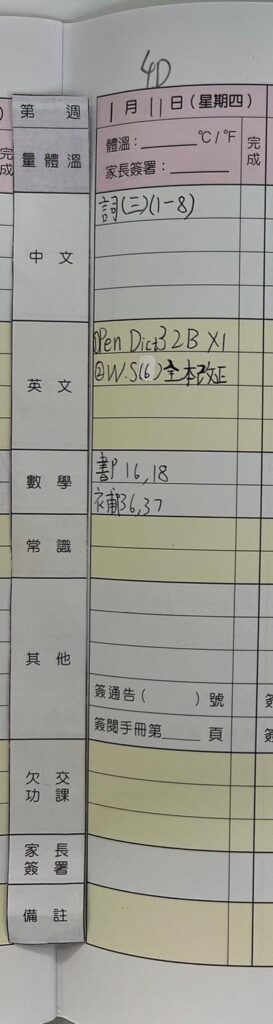 4D
第 週
1月11日(星期四)
量體溫
體溫:______℃/℉
家長簽署:______
完成
完成
中文
詞(三)(1-8)
英文
Open Dict32B X1
@W.S(6)全本改正
數學
書P16,18
補36,37
常識
其他
簽通告( )號
簽閱手冊第____頁
欠交功課
家長簽署
備註